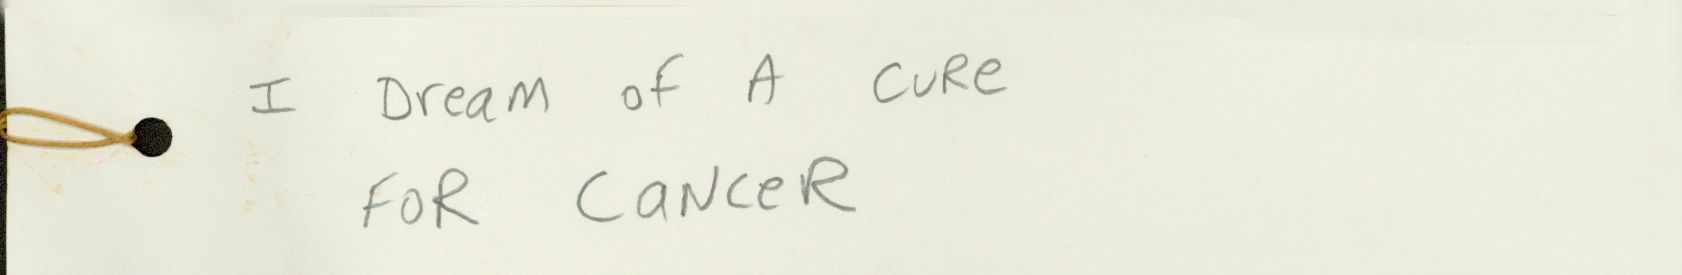 I Dream of A CURe
FOR CaNCeR